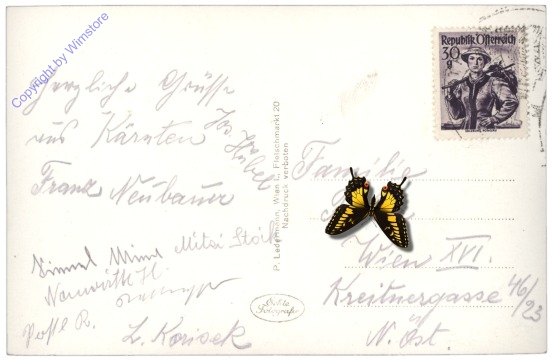 Copyright by Wimstore
Herzliche Grüsse
aus Kärnten
Franz Neubauer
Hubel
Mitzi Stöck
Neuwirth H.
L. Korisek
P. Ledermann, Wien I., Fleischmarkt 20
Nachdruck verboten
Echte
Fotografie
Republik Österreich
30
g
Familie
Wien XVI.
Kreitnergasse 46/23
N. Öst.